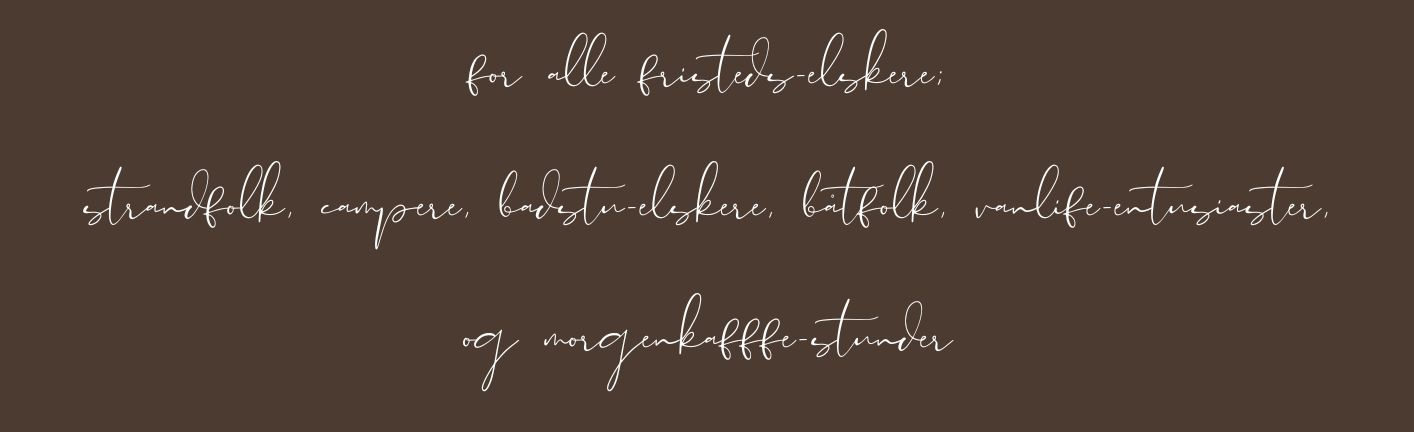 for alle fristeds-elskere;
strandfolk, campere, badstu-elskere, båtfolk, vanlife-entusiaster,
og morgenkafffe-stunder